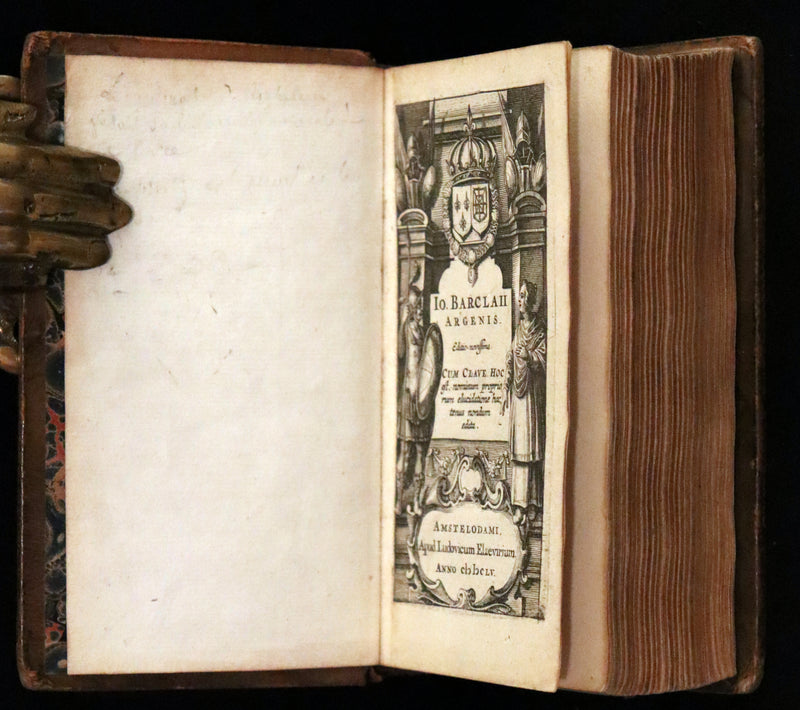 IO. BARCLAII
ARGENIS.
Editio novissima
CUM CLAVE, HOC
est, nominum proprio
rum elucidatione hac
tenus nondum
edita.
AMSTELODAMI,
Apud Ludovicum Elzevirium
ANNO cIↄIↄcLV.